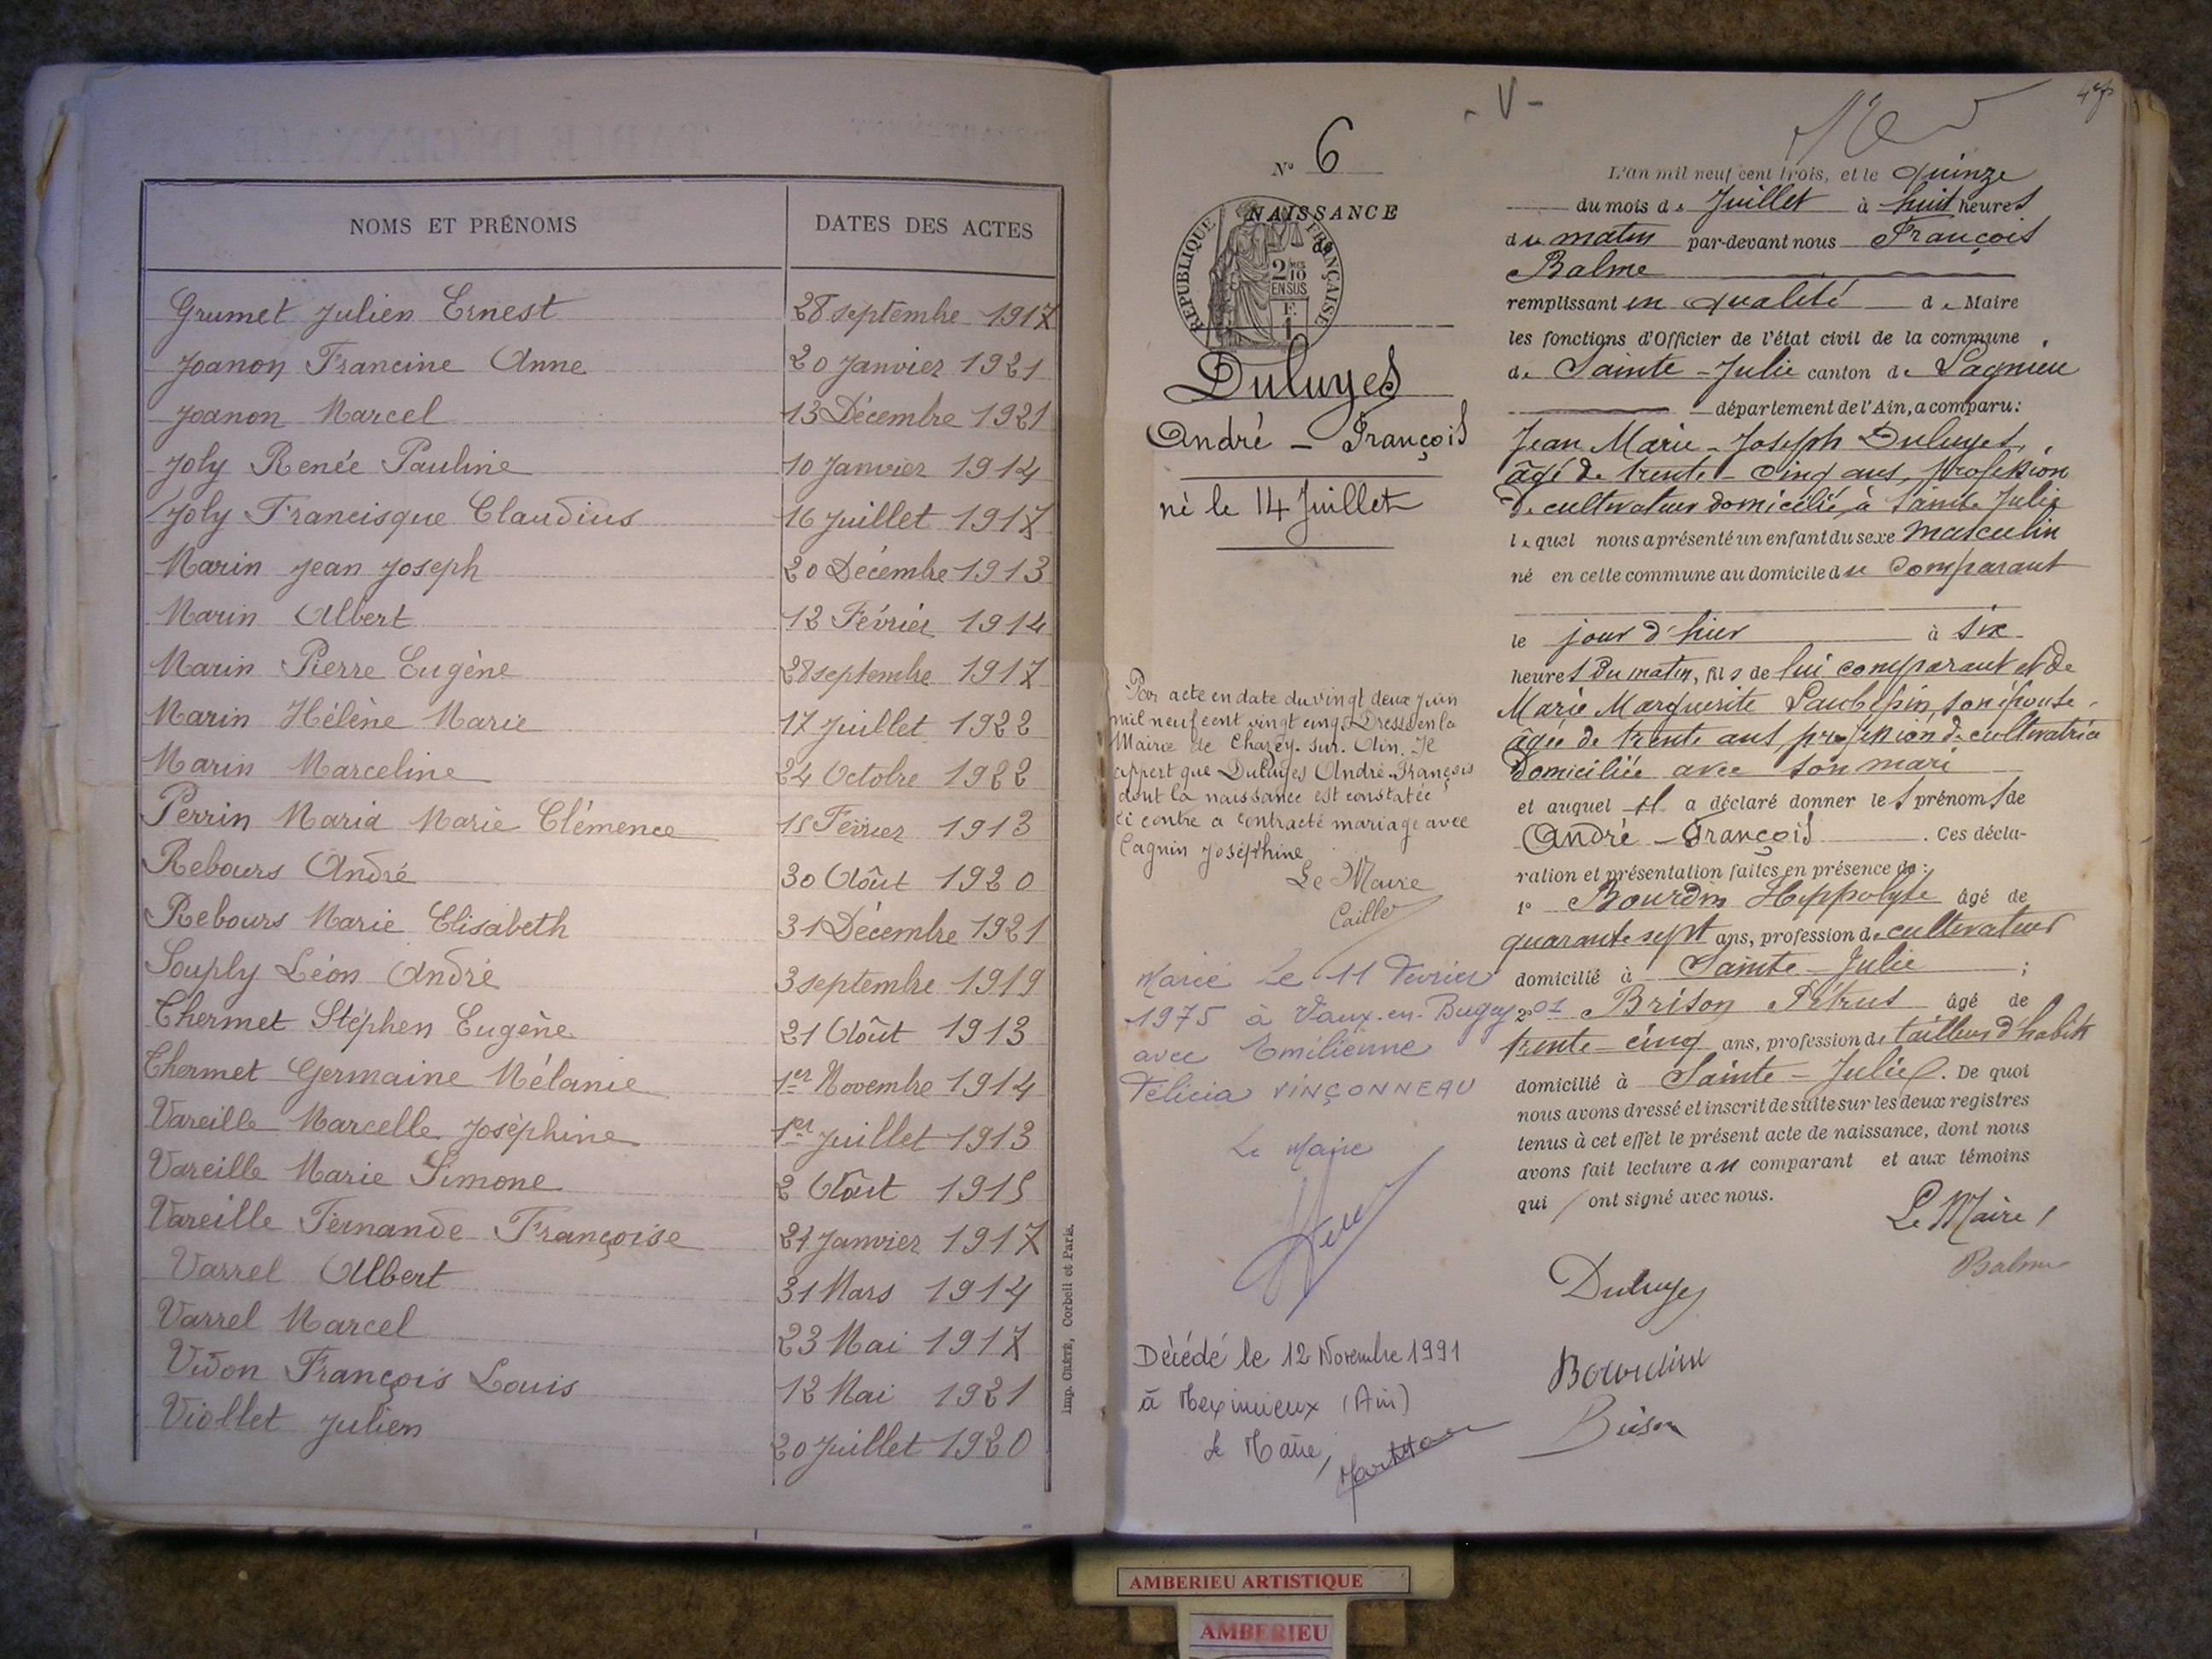 NOMS ET PRÉNOMS DATES DES ACTES
Grumet Julien Ernest 28 septembre 1917
Joanon Francine Anne 20 Janvier 1921
Joanon Marcel 13 Décembre 1921
Joly Renée Pauline 10 Janvier 1914
Joly Francisque Claudius 16 Juillet 1917
Marin Jean Joseph 20 Décembre 1913
Marin Albert 12 Février 1914
Marin Pierre Eugène 28 septembre 1917
Marin Hélène Marie 17 Juillet 1922
Marin Marceline 24 Octobre 1922
Perrin Maria Marie Clémence 15 Février 1913
Rebours André 30 Août 1920
Rebours Marie Elisabeth 31 Décembre 1921
Souply Léon André 3 septembre 1919
Thermet Stéphen Eugène 21 Août 1913
Thermet Germaine Mélanie 1er Novembre 1914
Vareille Marcelle Joséphine 1er Juillet 1913
Vareille Marie Simone 2 Août 1915
Vareille Fernande Françoise 21 Janvier 1917
Varrel Albert 31 Mars 1914
Varrel Marcel 23 Mai 1917
Vidon François Louis 12 Mai 1921
Viollet Julien 20 Juillet 1920
Imp. CRÉTÉ, Corbeil et Paris.
- V -
N° 6
NAISSANCE
de
RÉPUBLIQUE FRANÇAISE
2/10 MES
EN SUS
F.
1
Duluyes
André - François
né le 14 Juillet
Par acte en date du vingt deux Juin
mil neuf cent vingt cinq. Dressé en la
Mairie de Chazey. sur. Ain. Il
appert que Duluyes André-François
dont la naissance est constatée
ci contre a contracté mariage avec
Cagnin Joséphine
Le Maire
Caillet
Marié le 11 Février
1975 à Vaux-en-Bugey 01
avec Emilienne
Félicia VINÇONNEAU
Le Maire
Décédé le 12 Novembre 1991
à Meximieux (Ain)
Le Maire,
L'an mil neuf cent trois, et le quinze
du mois de Juillet à huit heures
du matin par-devant nous François
Balme
remplissant en qualité de Maire
les fonctions d'Officier de l'état civil de la commune
de Sainte-Julie canton de Lagnieu
département de l'Ain, a comparu:
Jean Marie-Joseph Duluyes,
âgé de trente-cinq ans, profession
de cultivateur domicilié à Sainte Julie
lequel nous a présenté un enfant du sexe masculin
né en cette commune au domicile du comparant
le jour d'hier à six
heures du matin, fils de lui comparant et de
Marie Marguerite Paublepin, son épouse,
âgée de trente ans profession de cultivatrice
domiciliée avec son mari
et auquel il a déclaré donner les prénoms de
André - François. Ces décla-
ration et présentation faites en présence de :
1° Bourdin Hippolyte âgé de
quarante sept ans, profession de cultivateur
domicilié à Sainte-Julie ;
2° Brison Pétrus âgé de
trente-cinq ans, profession de tailleur d'habits
domicilié à Sainte-Julie. De quoi
nous avons dressé et inscrit de suite sur les deux registres
tenus à cet effet le présent acte de naissance, dont nous
avons fait lecture au comparant et aux témoins
qui ont signé avec nous.
Le Maire,
Balme
Duluyes
Bourdin
Brison
AMBERIEU ARTISTIQUE
AMBERIEU